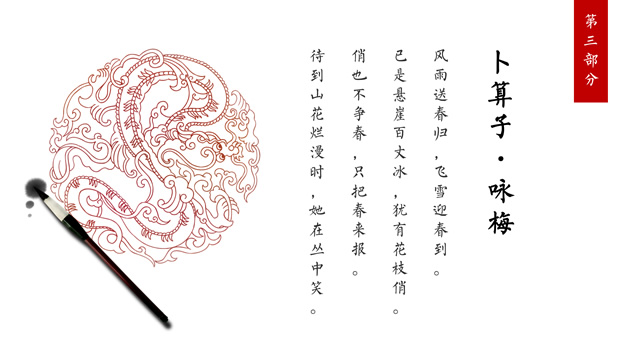 第三部分
卜算子·咏梅
风雨送春归,飞雪迎春到。
已是悬崖百丈冰,犹有花枝俏。
俏也不争春,只把春来报。
待到山花烂漫时,她在丛中笑。